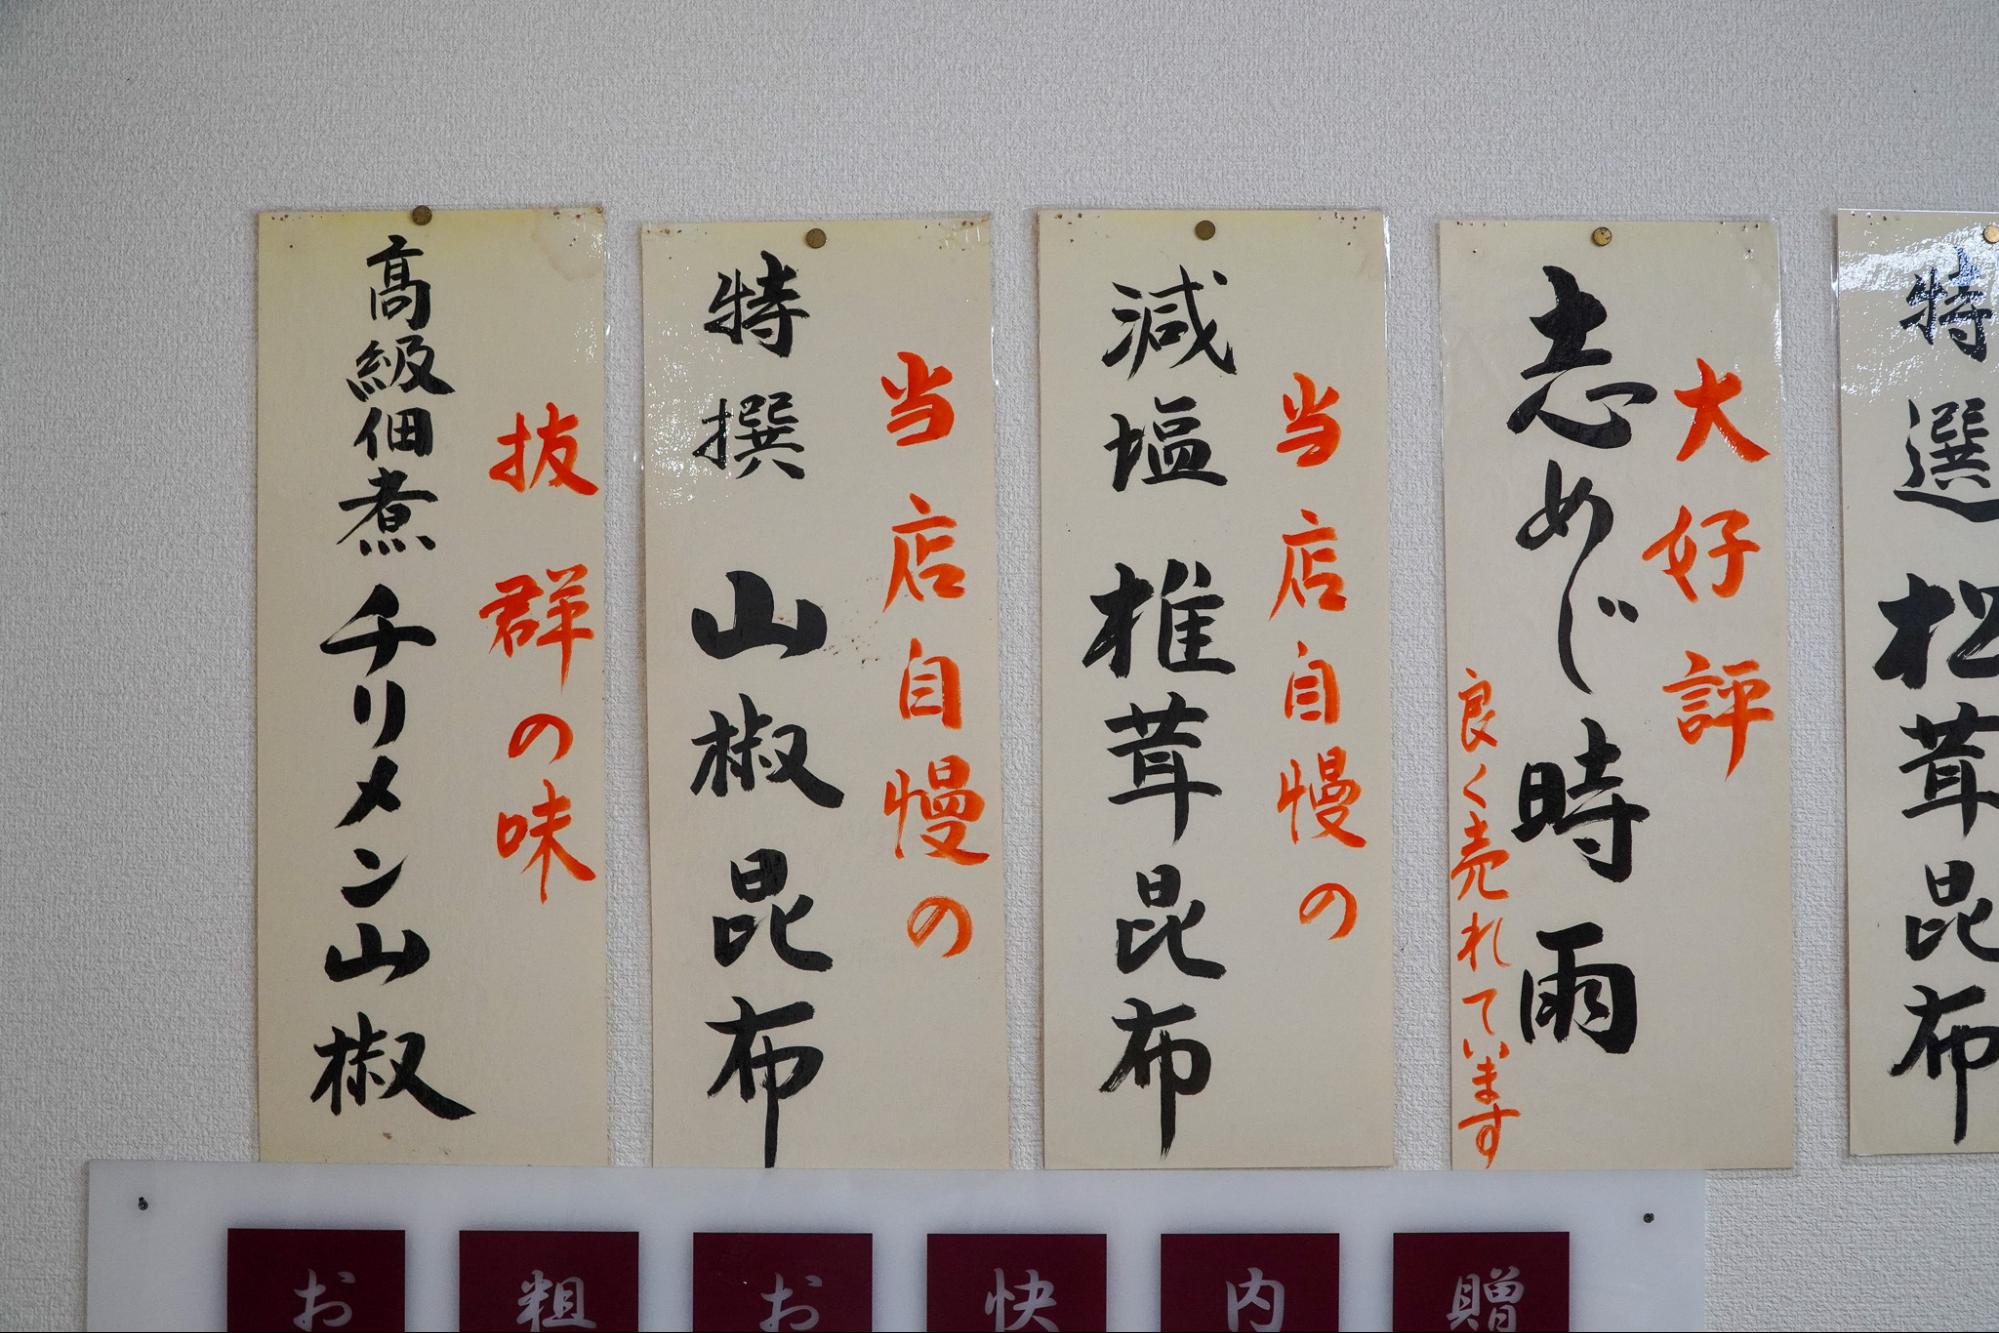 特選 松茸昆布
大好評
志めじ時雨
良く売れています
当店自慢の
減塩 椎茸昆布
当店自慢の
特撰 山椒昆布
抜群の味
高級佃煮チリメン山椒
贈
内
快
お
粗
お